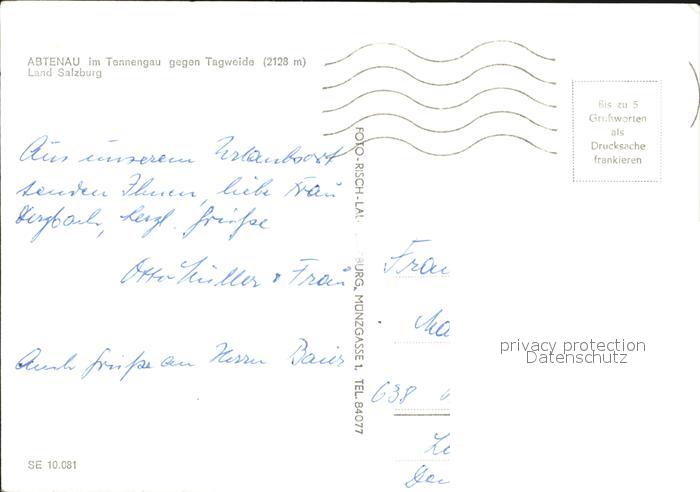 ABTENAU im Tennengau gegen Tagweide (2128 m)
Land Salzburg
Bis zu 5
Grußworten
als
Drucksache
frankieren
Aus unserem Urlaubsort
senden Ihnen, liebe Frau
herzl. Grüße
Otto Müller & Frau
Auch Grüße an Herrn Baier
FOTO-RISCH-LAU BURG, MÜNZGASSE 1, TEL. 84077
Frau
Ma
638
privacy protection
Datenschutz
SE 10.081